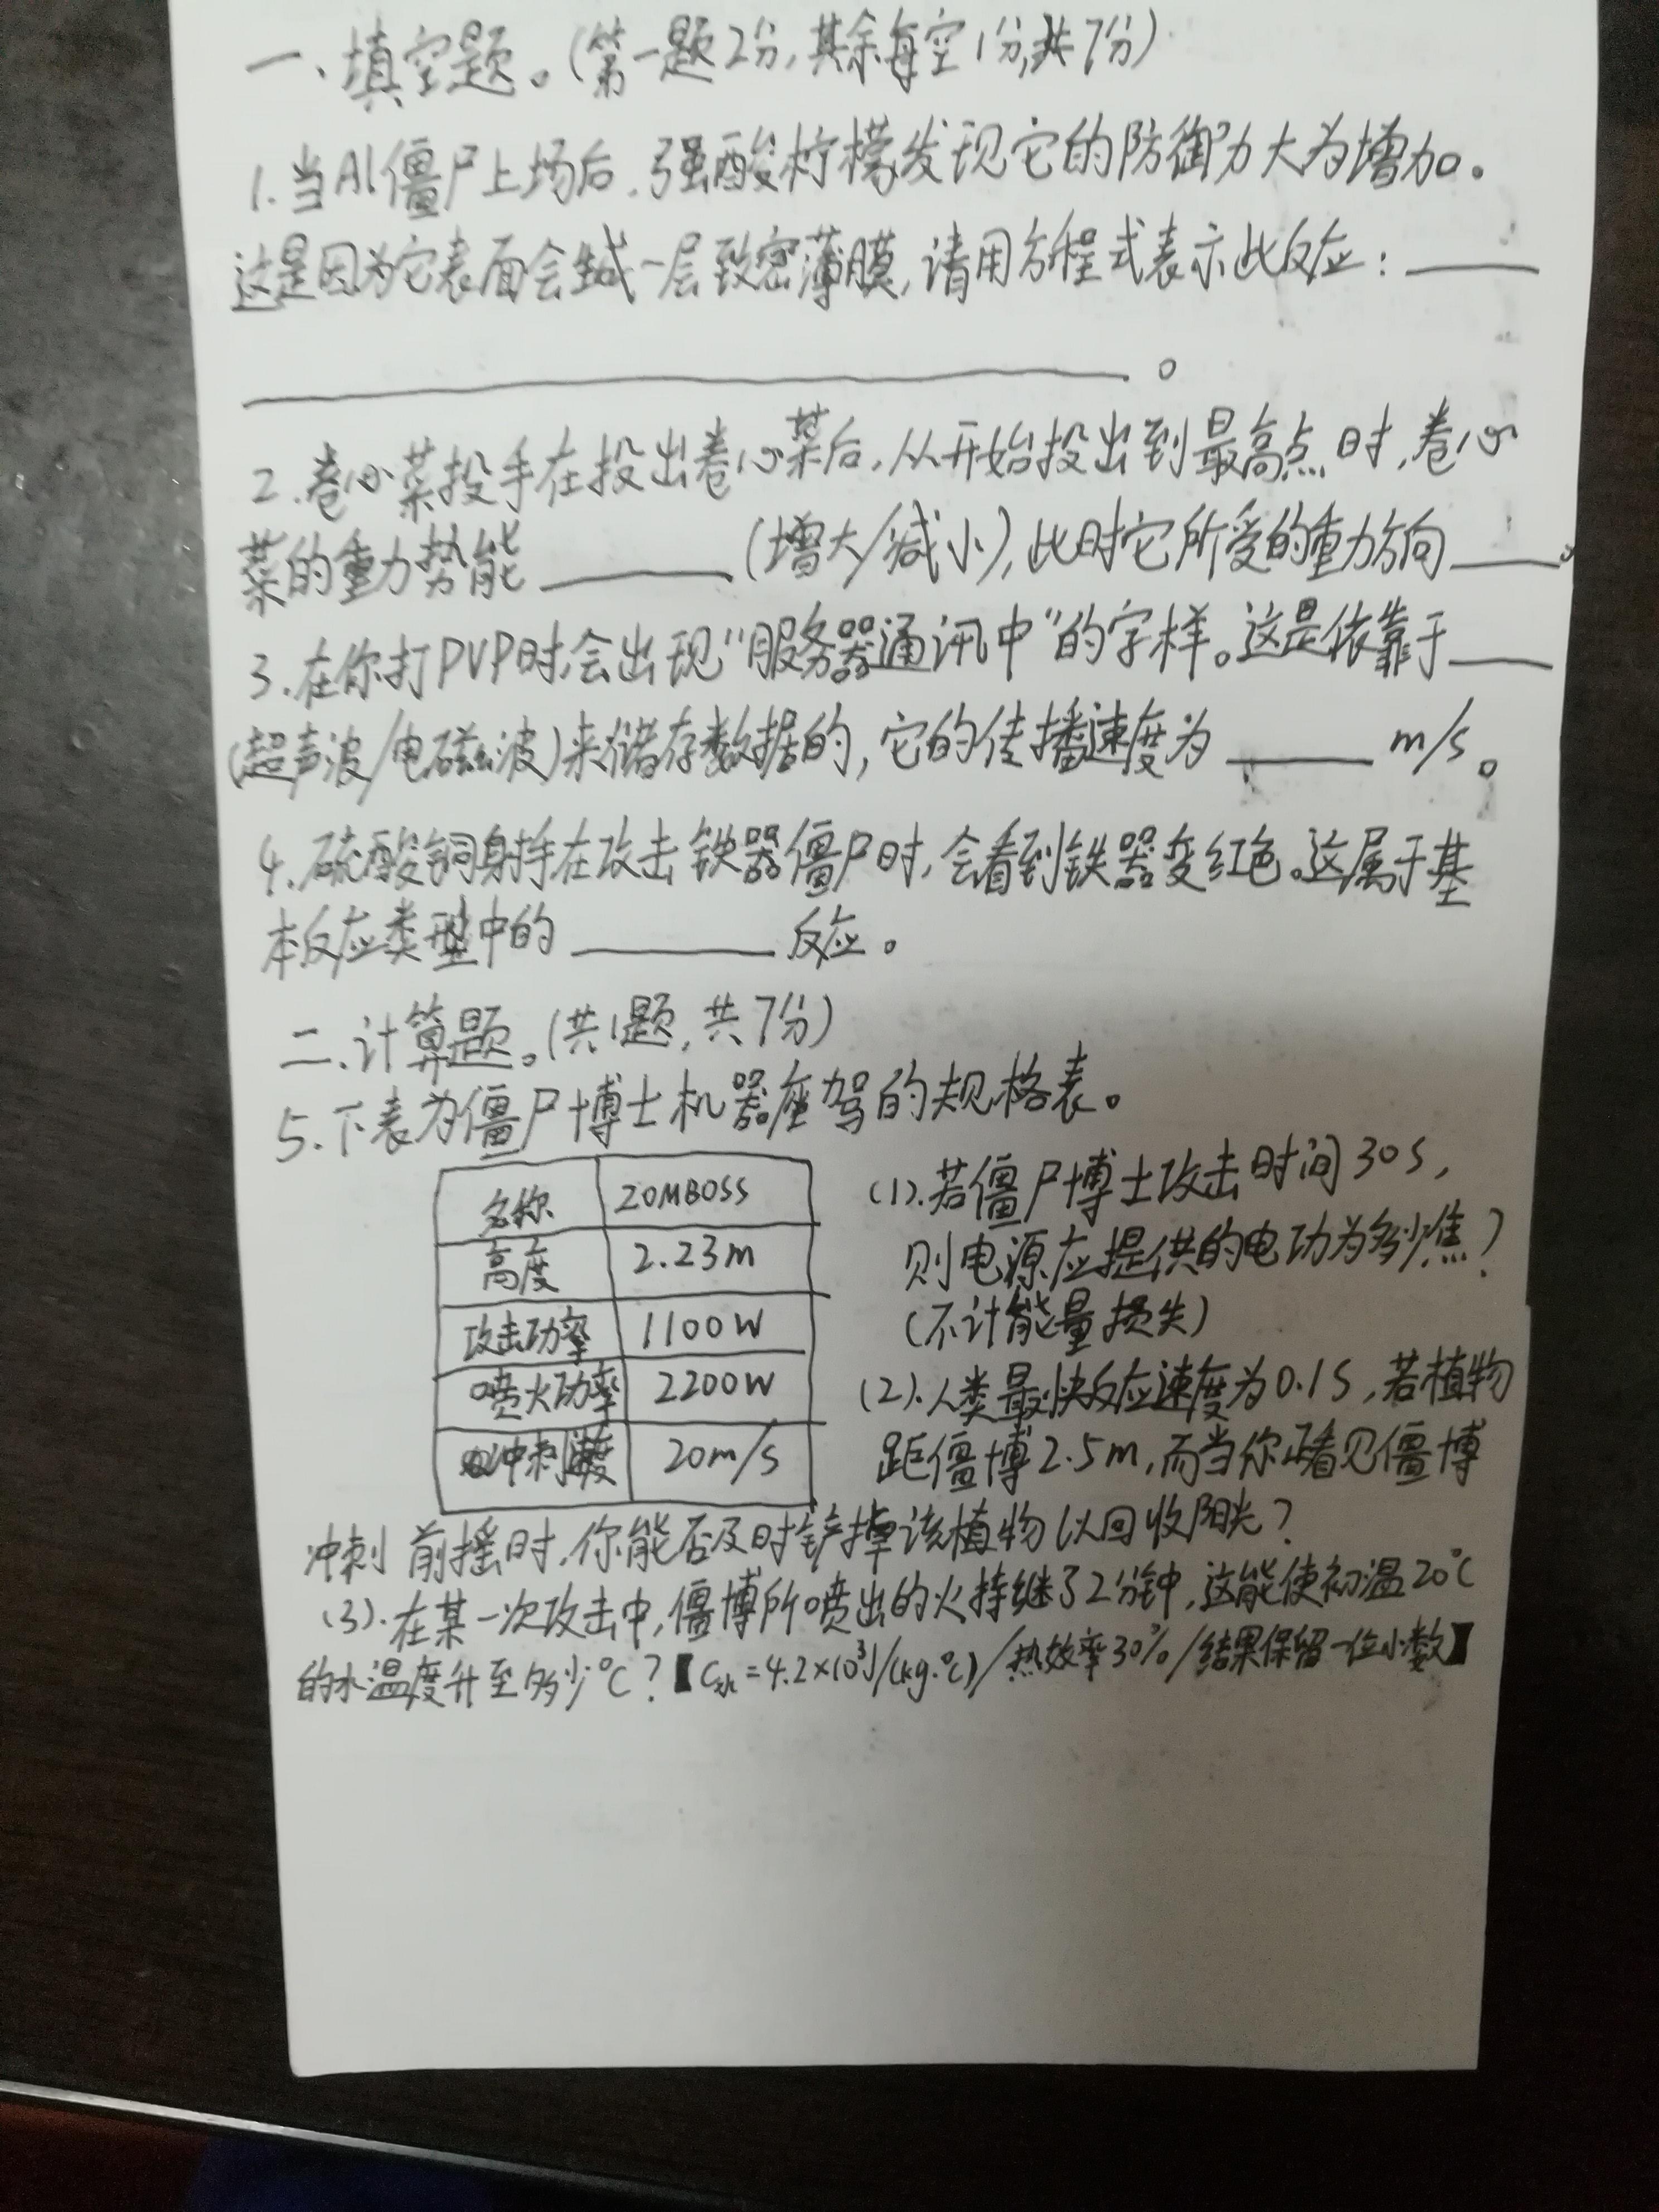 一、填空题。(第一题2分,其余每空1分,共7分)
1.当Al僵尸上场后,强酸柠檬发现它的防御力大为增加。
这是因为它表面会生成一层致密薄膜,请用方程式表示此反应:____
____________。
2.卷心菜投手在投出卷心菜后,从开始投出到最高点时,卷心
菜的重力势能____(增大/减小),此时它所受的重力方向____。
3.在你打PVP时,会出现"服务器通讯中"的字样。这是依靠于____
(超声波/电磁波)来储存数据的,它的传播速度为____m/s。
4.硫酸铜射手在攻击铁器僵尸时,会看到铁器变红色。这属于基
本反应类型中的____反应。
二、计算题。(共1题,共7分)
5.下表为僵尸博士机器座驾的规格表。
名称 ZOMBOSS
高度 2.23m
攻击功率 1100W
喷火功率 2200W
冲刺速度 20m/s
(1).若僵尸博士攻击时间30s,
则电源应提供的电功为多少焦?
(不计能量损失)
(2).人类最快反应速度为0.1s,若植物
距僵博2.5m,而当你正看见僵博
冲刺前摇时,你能否及时铲掉该植物以回收阳光?
(3).在某一次攻击中,僵博所喷出的火持继了2分钟,这能使初温20℃
的水温度升至多少℃?【C水=4.2×10³J/(kg·℃)/热效率30%/结果保留一位小数】